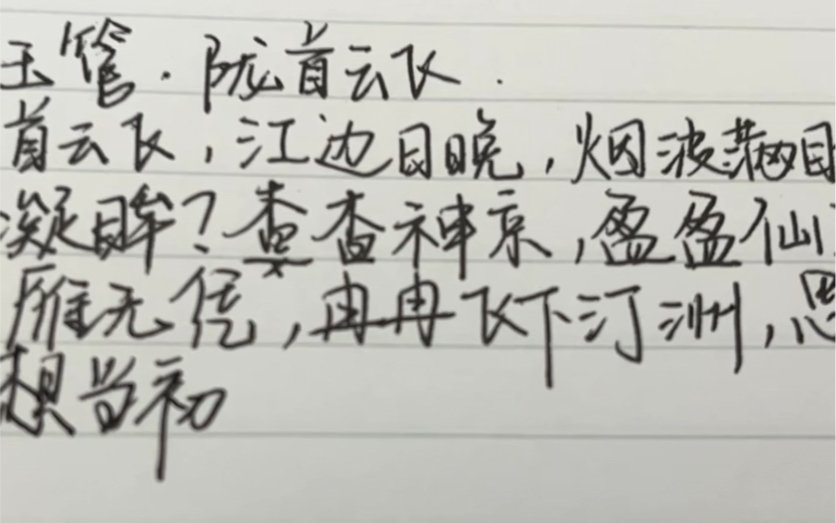 玉管·陇首云飞.
首云飞,江边日晚,烟波满目
凝眸?杳杳神京,盈盈仙
雁无凭,冉冉飞下汀洲,思
想当初